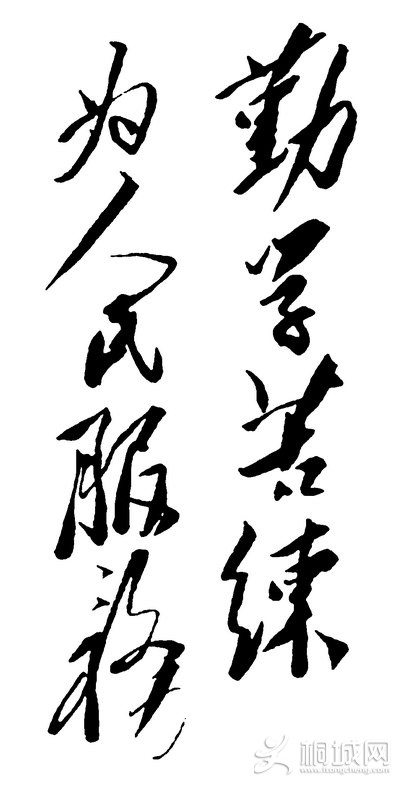 勤学苦练
为人民服务
桐城网
www.itongcheng.com